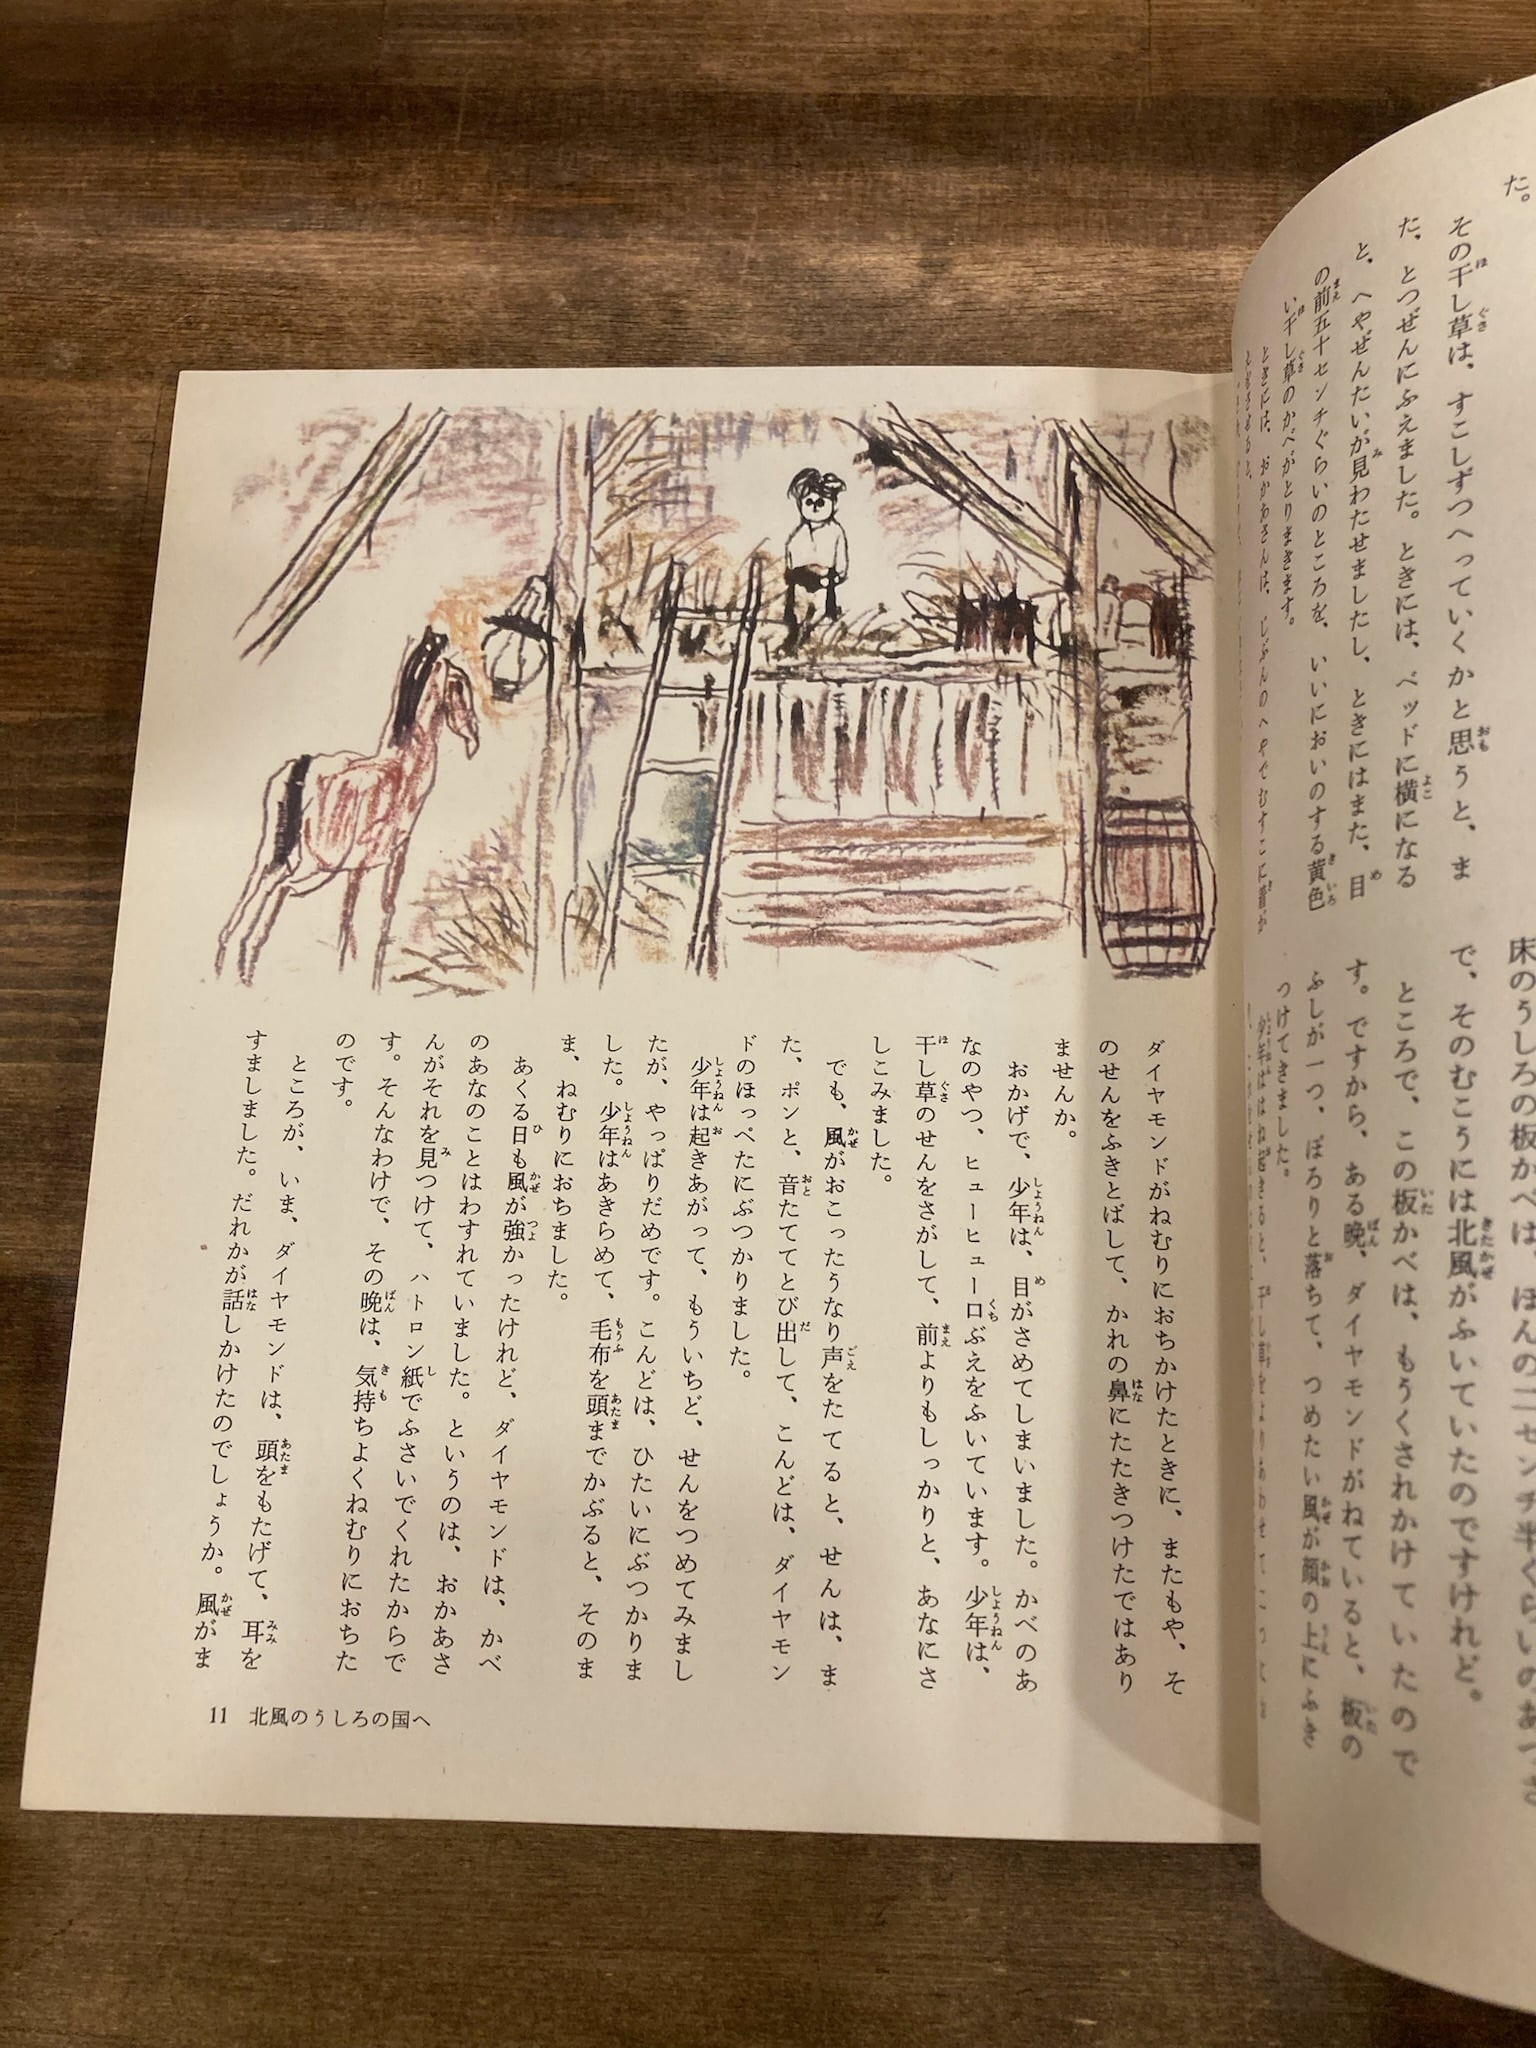 た。
その干し草は、すこしずつへっていくかと思うと、ま
た、とつぜんにふえました。ときには、ベッドに横になる
と、へやぜんたいが見わたせましたし、ときにはまた、目
の前五十センチぐらいのところを、いいにおいのする黄色
い干し草のかべがとりまきます。
ときには、おかあさんは、じぶんのへやでむすこに着が
床のうしろの板かべは、ほんの二センチ半ぐらいのあつさ
で、そのむこうには北風がふいていたのですけれど。
ところで、この板かべは、もうくされかけていたので
す。ですから、ある晩、ダイヤモンドがねていると、板の
ふしが一つ、ぽろりと落ちて、つめたい風が顔の上にふき
つけてきました。
少年ははね起きると、干し草をよりあわせて
ダイヤモンドがねむりにおちかけたときに、またもや、そ
のせんをふきとばして、かれの鼻にたたきつけたではあり
ませんか。
おかげで、少年は、目がさめてしまいました。かべのあ
なのやつ、ヒューヒュー口ぶえをふいています。少年は、
干し草のせんをさがして、前よりもしっかりと、あなにさ
しこみました。
でも、風がおこったうなり声をたてると、せんは、ま
た、ポンと、音たててとび出して、こんどは、ダイヤモン
ドのほっぺたにぶつかりました。
少年は起きあがって、もういちど、せんをつめてみまし
たが、やっぱりだめです。こんどは、ひたいにぶつかりま
した。少年はあきらめて、毛布を頭までかぶると、そのま
ま、ねむりにおちました。
あくる日も風が強かったけれど、ダイヤモンドは、かべ
のあなのことはわすれていました。というのは、おかあさ
んがそれを見つけて、ハトロン紙でふさいでくれたからで
す。そんなわけで、その晩は、気持ちよくねむりにおちた
のです。
ところが、いま、ダイヤモンドは、頭をもたげて、耳を
すましました。だれかが話しかけたのでしょうか。風がま
11 北風のうしろの国へ